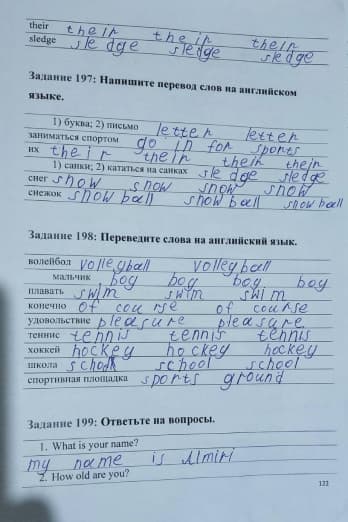 their their their their
sledge sledge sledge sledge
Задание 197: Напишите перевод слов на английском
языке.
1) буква; 2) письмо letter letter
заниматься спортом go in for sports
их their their their their
1) санки; 2) кататься на санках sledge sledge
снег snow snow snow snow
снежок snowball snowball snowball
Задание 198: Переведите слова на английский язык.
волейбол volleyball volleyball
мальчик boy boy boy boy
плавать swim swim swim
конечно of course of course
удовольствие pleasure pleasure
теннис tennis tennis tennis
хоккей hockey hockey hockey
школа school school school
спортивная площадка sports ground
Задание 199: Ответьте на вопросы.
1. What is your name?
my name is Almiri
2. How old are you?
122